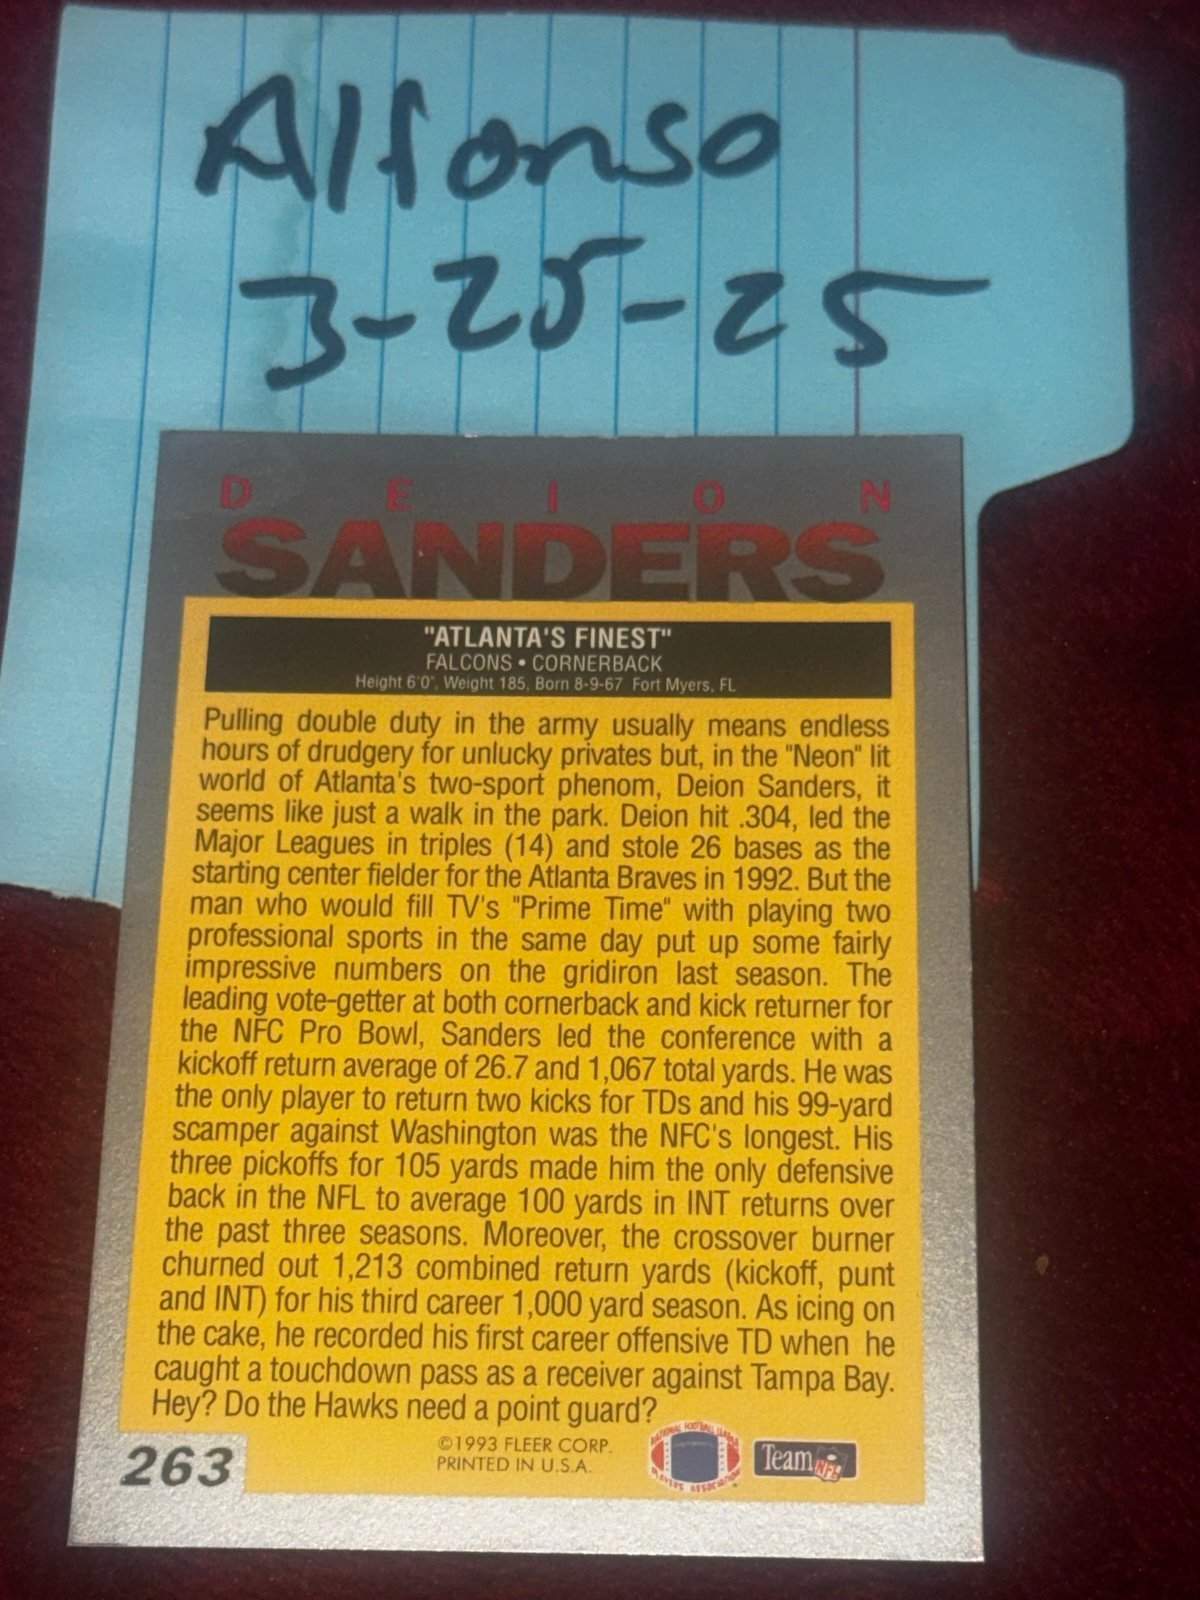 Alfonso
3-25-25
DEION
SANDERS
"ATLANTA'S FINEST"
FALCONS • CORNERBACK
Height 6'0", Weight 185, Born 8-9-67 Fort Myers, FL
Pulling double duty in the army usually means endless
hours of drudgery for unlucky privates but, in the "Neon" lit
world of Atlanta's two-sport phenom, Deion Sanders, it
seems like just a walk in the park. Deion hit .304, led the
Major Leagues in triples (14) and stole 26 bases as the
starting center fielder for the Atlanta Braves in 1992. But the
man who would fill TV's "Prime Time" with playing two
professional sports in the same day put up some fairly
impressive numbers on the gridiron last season. The
leading vote-getter at both cornerback and kick returner for
the NFC Pro Bowl, Sanders led the conference with a
kickoff return average of 26.7 and 1,067 total yards. He was
the only player to return two kicks for TDs and his 99-yard
scamper against Washington was the NFC's longest. His
three pickoffs for 105 yards made him the only defensive
back in the NFL to average 100 yards in INT returns over
the past three seasons. Moreover, the crossover burner
churned out 1,213 combined return yards (kickoff, punt
and INT) for his third career 1,000 yard season. As icing on
the cake, he recorded his first career offensive TD when he
caught a touchdown pass as a receiver against Tampa Bay.
Hey? Do the Hawks need a point guard?
263
©1993 FLEER CORP.
PRINTED IN U.S.A.
NATIONAL FOOTBALL LEAGUE
PLAYERS ASSOCIATION
Team NFL